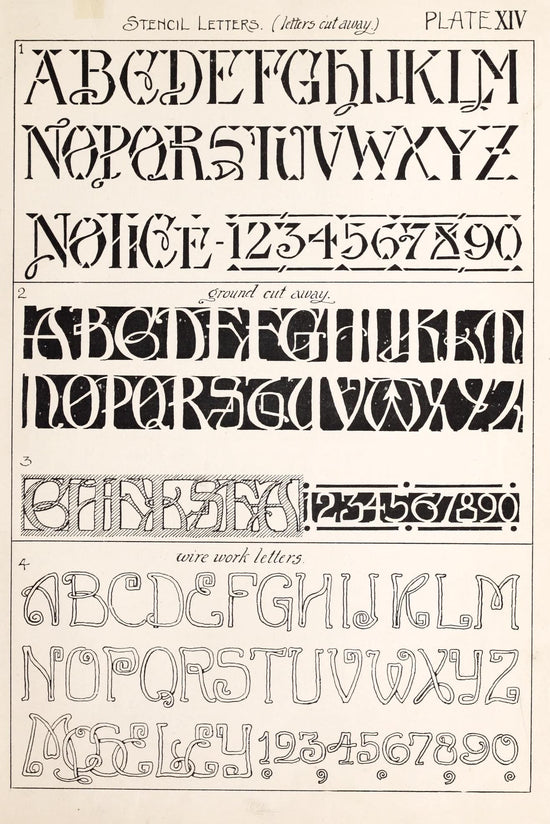 STENCIL LETTERS. (letters cut away)
PLATE XIV
1
ABCDEFGHIJKLM
NOPQRSTUVWXYZ
NOTICE-1234567890
2
ground cut away.
ABCDEFGHIJKLM
NOPQRSTUVWXYZ
3
CHELSEA 1234567890
wire work letters.
4
ABCDEFGHIJKLM
NOPQRSTUVWXYZ
MOSELEY 1234567890